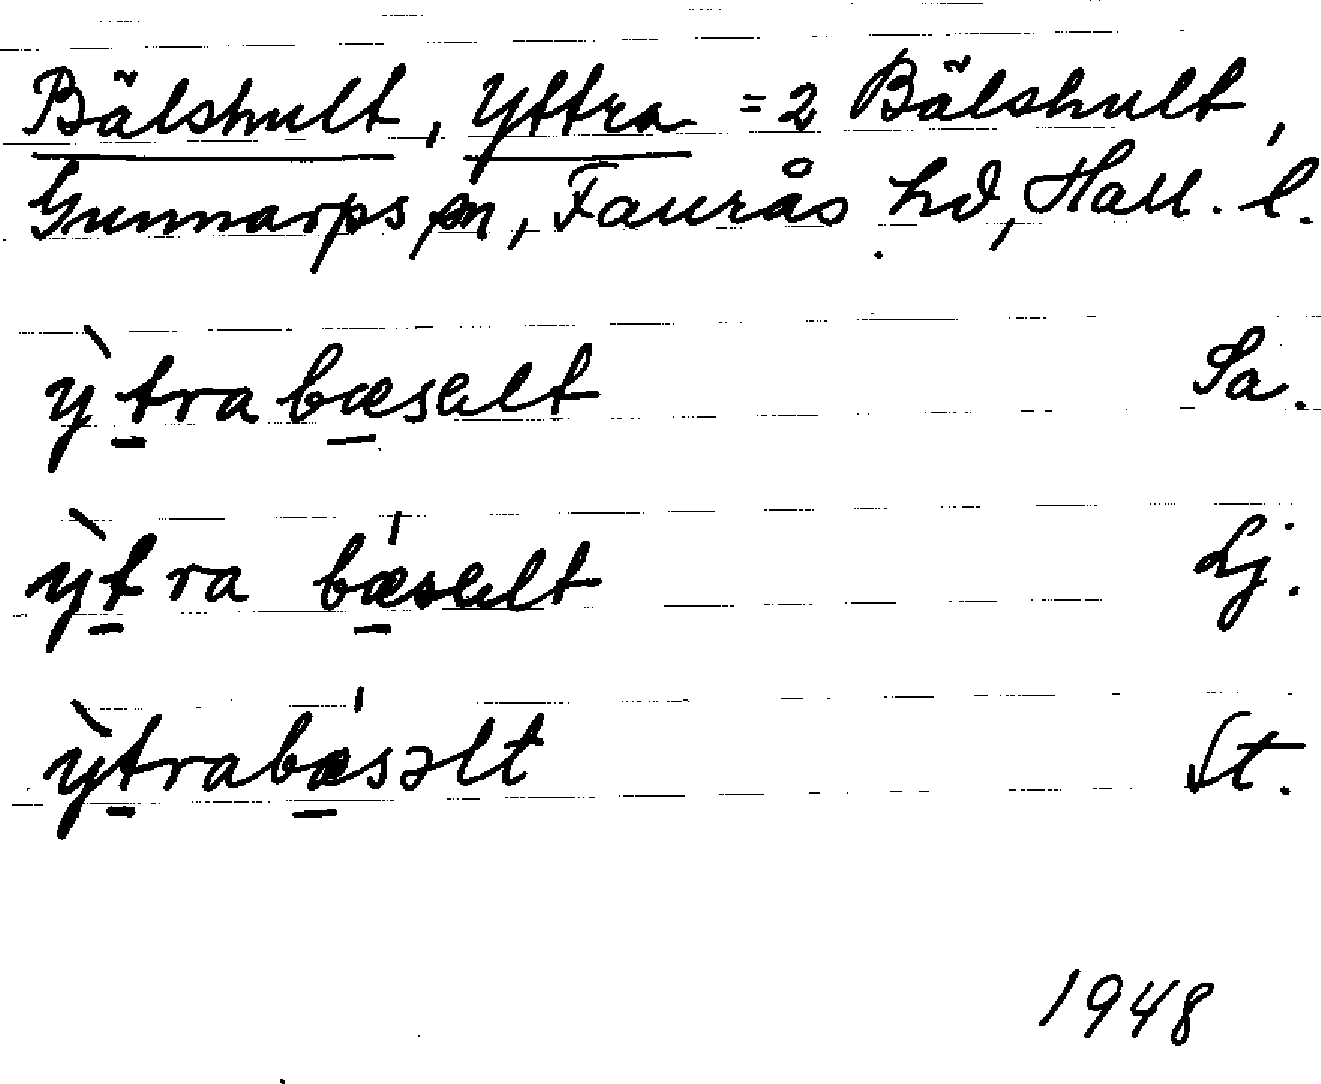 Bälshult, Yttra = 2 Bälshult,
Gunnarps sn, Faurås hd, Hall. l.
ỳtra bæsəlt Sa.
ỳtra bǽsəlt Lj.
ỳtrabǽsəlt St.
1948